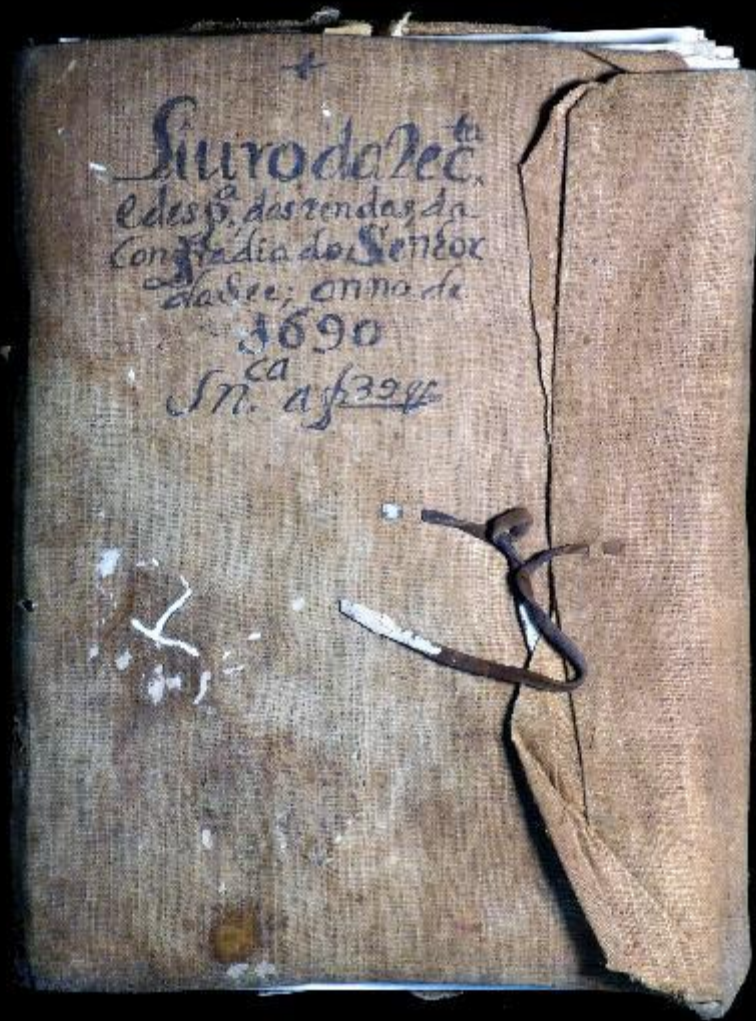 +
Liuro da Rec.ta
e desp.a, das rendas, da
Confradia do, Senhor
da See; anno de
1690